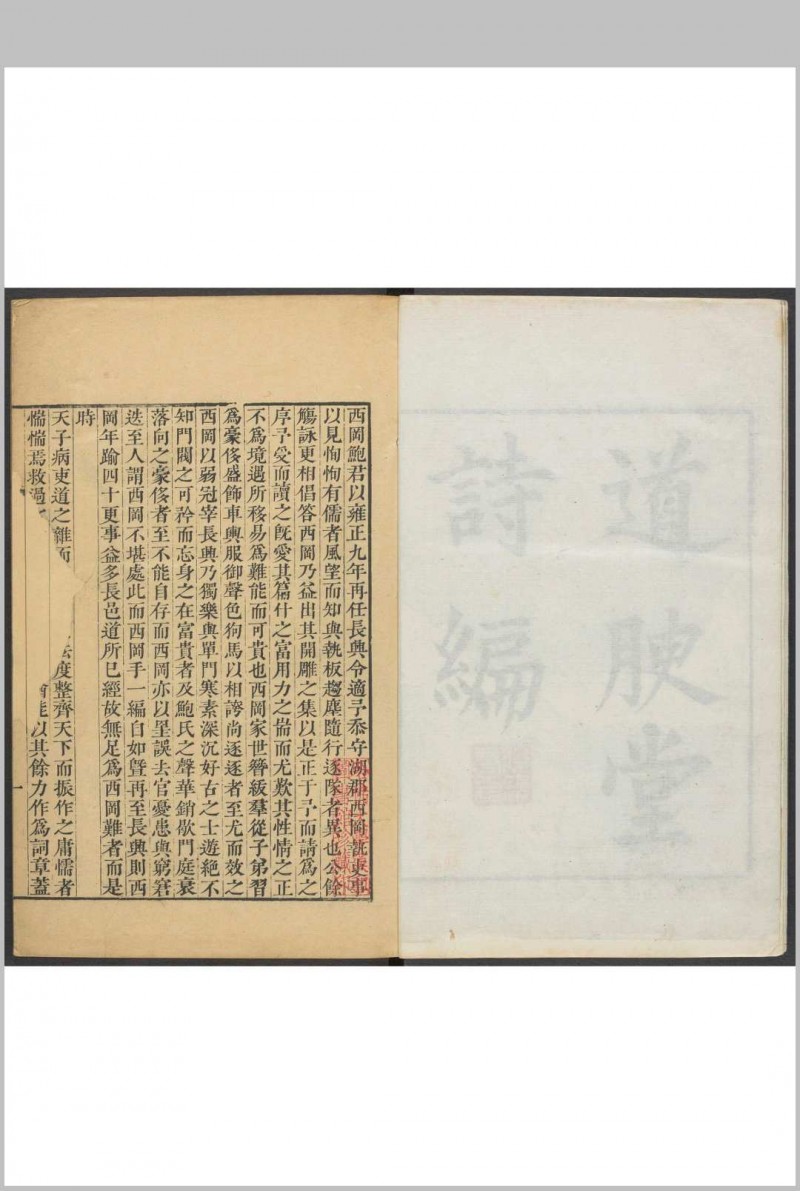 道腴堂
詩編
西岡鮑君以雍正九年再任長興令適予忝守湖郡西岡執吏事
以見恂恂有儒者風望而知與執板趨塵隨行逐隊者異也公餘
觴詠更相倡答西岡乃益出其開雕之集以是正于予而請爲之
序予受而讀之旣愛其篇什之富用力之耑而尤歎其性情之正
不爲境遇所移易爲難能而可貴也西岡家世簪紱羣從子弟習
爲豪侈盛飾車輿服御聲色狗馬以相誇尚逐逐者至尤而效之
西岡以弱冠宰長興乃獨樂與單門寒素深沉好古之士遊絕不
知門閥之可矜而忘身之在富貴者及鮑氏之聲華銷歇門庭衰
落向之豪侈者至不能自存而西岡亦以罣誤去官憂患與窮窘
迭至人謂西岡不堪處此而西岡手一編自如曁再至長興則西
岡年踰四十更事益多長邑道所已經故無足爲西岡難者而是
時
天子病吏道之雜而法度整齊天下而振作之庸懦者
惴惴焉救過能以其餘力作爲詞章蓋
一